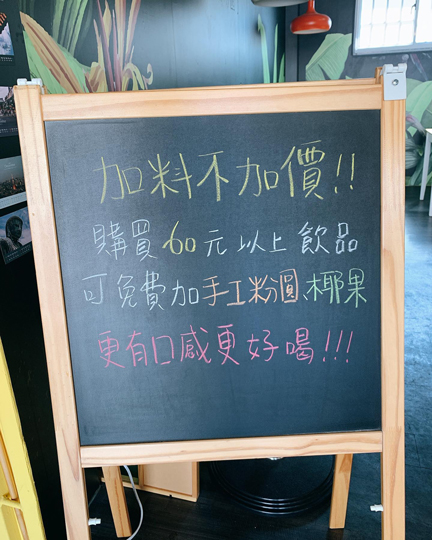 加料不加價!!
購買60元以上飲品
可免費加手工粉圓、椰果
更有口感更好喝!!!